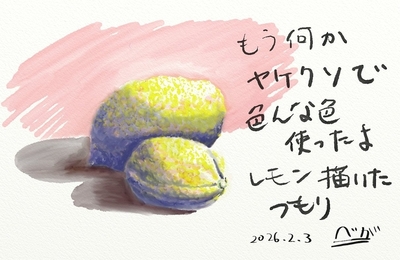 もう何か
ヤケクソで
色んな色
使ったよ
レモン描いた
つもり
2026.2.3 べが